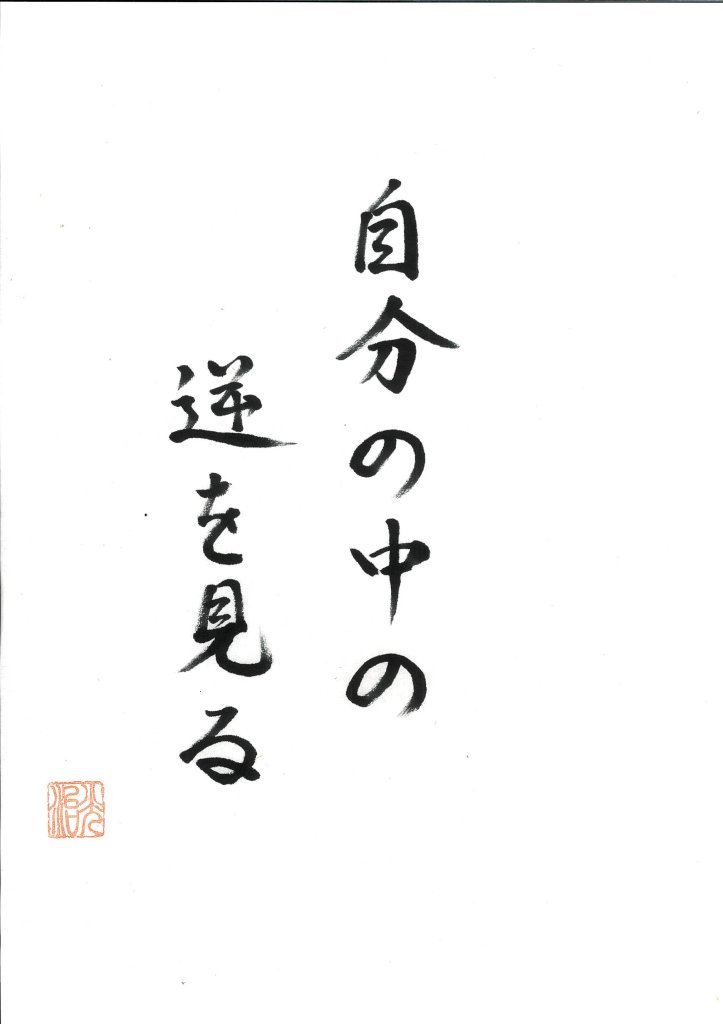 自分の中の
逆を見る